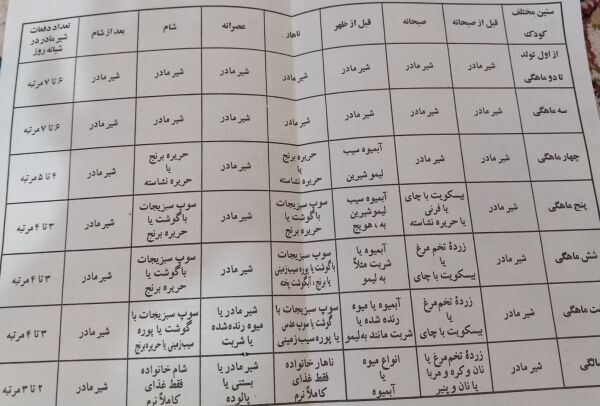 سنین مختلف کودک | قبل از صبحانه | صبحانه | قبل از ظهر | ناهار | عصرانه | شام | بعد از شام | تعداد دفعات شیر مادر در شبانه روز
از اول تولد تا دو ماهگی | شیر مادر | شیر مادر | شیر مادر | شیر مادر | شیر مادر | شیر مادر | شیر مادر | ۶ تا ۷ مرتبه
سه ماهگی | شیر مادر | شیر مادر | شیر مادر | شیر مادر | شیر مادر | شیر مادر | شیر مادر | ۶ تا ۷ مرتبه
چهار ماهگی | شیر مادر | شیر مادر | آبمیوه سیب لیمو شیرین | حریره برنج یا حریره نشاسته | شیر مادر | حریره برنج یا حریره نشاسته | شیر مادر | ۴ تا ۵ مرتبه
پنج ماهگی | شیر مادر | بیسکویت با چای یا فرنی یا حریره نشاسته | آبمیوه سیب لیمو شیرین به ، هویج | سوپ سبزیجات با گوشت یا حریره برنج | شیر مادر | سوپ سبزیجات با گوشت یا حریره برنج | شیر مادر | ۳ تا ۴ مرتبه
شش ماهگی | شیر مادر | زردهٔ تخم مرغ یا بیسکویت با چای | آبمیوه یا شربت مثلاً به لیمو | سوپ سبزیجات با گوشت یا پوره سیب زمینی یا برنج ، آبگوشت پخته | شیر مادر | سوپ سبزیجات با گوشت یا حریره برنج | شیر مادر | ۳ تا ۴ مرتبه
ماهگی | شیر مادر | زردهٔ تخم مرغ یا بیسکویت با چای | آبمیوه یا میوه رنده شده یا شربت مانند به لیمو | سوپ سبزیجات با گوشت یا سوپ عدس یا پوره سیب زمینی | شیر مادر یا میوه رنده شده یا شربت | سوپ سبزیجات با گوشت یا پوره سیب زمینی یا حریره برنج | شیر مادر | ۳ تا ۴ مرتبه
شیر مادر | زردهٔ تخم مرغ یا نان و کره و مربا یا نان و پنیر | انواع میوه یا آبمیوه | ناهار خانواده فقط غذای کاملاً نرم | شیر مادر یا بستنی یا پالوده | شام خانواده فقط غذای کاملاً نرم | شیر مادر | ۲ تا ۳ مرتبه